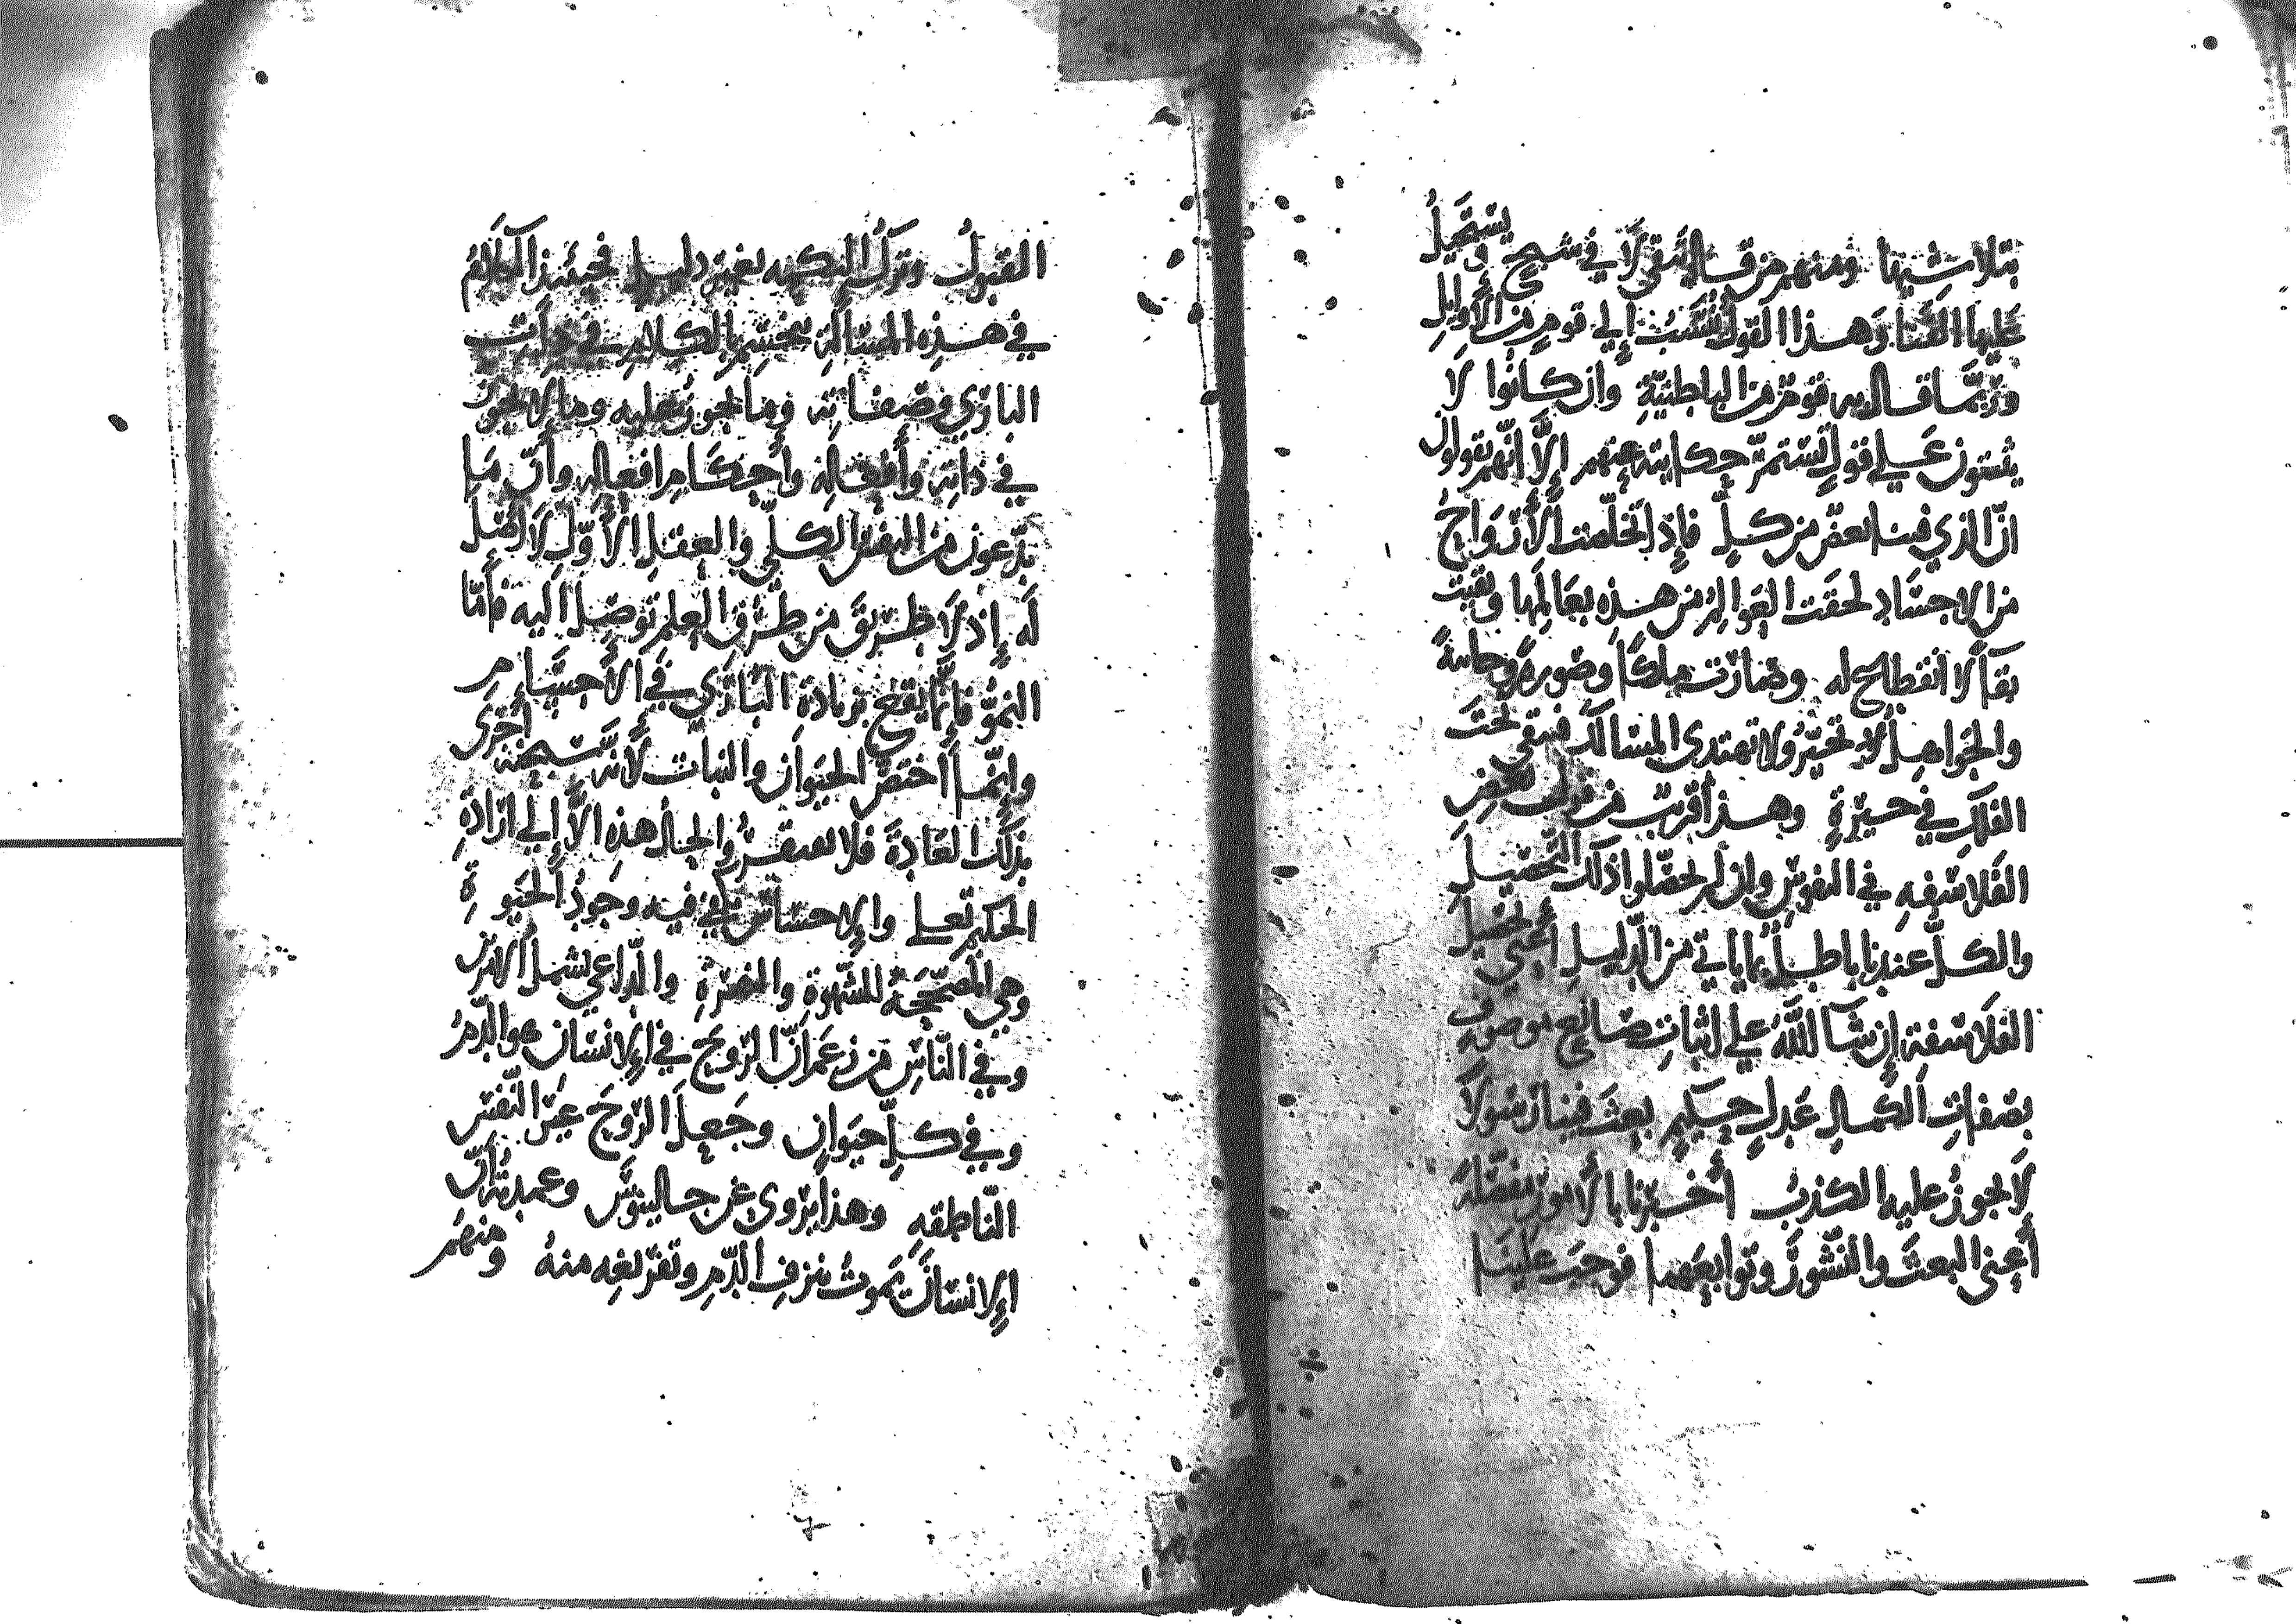 بتلاشيها ومنهم من قال تبقى لا في شبح ويستحيل
عليها الفنا وهذا القول ينسب إلي قوم من الأوايل
وربما قال به قوم من الباطنية وان كانوا لا
يثبتون علي قول تستمر حكايته عنهم إلا أنهم يقولون
ان الذي فينا بعض من كل فإذا تخلصت الأرواح
من الاجساد لحقت العوالم من هذه بعالمها وبقيت
بقآ لا انقطاع له وصارت ملكا وصورة روحانية
والجواهل لا تتحير ولا تهتدي المسالك فتبقى تحت
الفلك في حيرة وهذا أقرب من قول بعض
الفلاسفه في النفوس وان لم يحصلوا ذلك التحصيل
والكل عندنا باطل بما ياتي من الدليل أعني تحصيل
الفلاسفة إن شآ الله علي اثبات صانع موصوف
بصفات الكمال عدل حكيم بعث فينا رسولا
لا يجوز عليه الكذب أخبرنا بالأمور مفصلة
أعني البعث والنشور وتوابعهما فوجب علينا
القبول وترك النكير بغير دليل فحينئذ الكلام
في هذه المسألة ينحسم بالكلام في ذات
الباري وصفاته وما يجوز عليه وما لا يجوز
في ذاته وأفعاله وأحكام افعاله وأن ما
يدعون من النفس الكلي والعقل الأول لا أصل
له إذ لا طريق من طرق العلم توصل اليه فأما
النمو فإنما يقع بزيادة الباري في الأجسام
وإنما اختص الحيوان والنبات لأنه سبحنه أجرى
بذلك العادة فلا تفتقر والحال هذه الا إلي ارادة
الحكيم تعلي والإحساس يكفي فيه وجود الحيوة
وهي المصححة للشهوة والنفرة والداعي يشمل الأمرين
وفي الناس من زعم أن الروح في الإنسان هو الدم
وفي كل حيوان وجعل الروح غير النفس
الناطقه وهذا يروى عن جالينوس وعمدته أن
الإنسان يموت بنزف الدم وتفريغه منه ومنهم